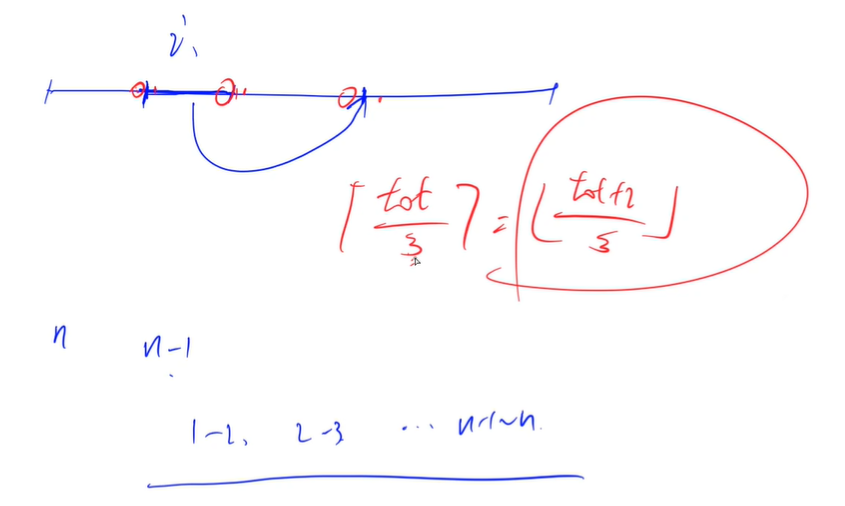 i
⌈tot/3⌉ = ⌊tot+2/3⌋
n n-1
1-2, 2-3 ... n-1~n.